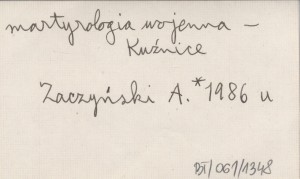 martyrologia wojenna –
Kuźnice
Zaczyński A. *1986 u
BI/061/1348